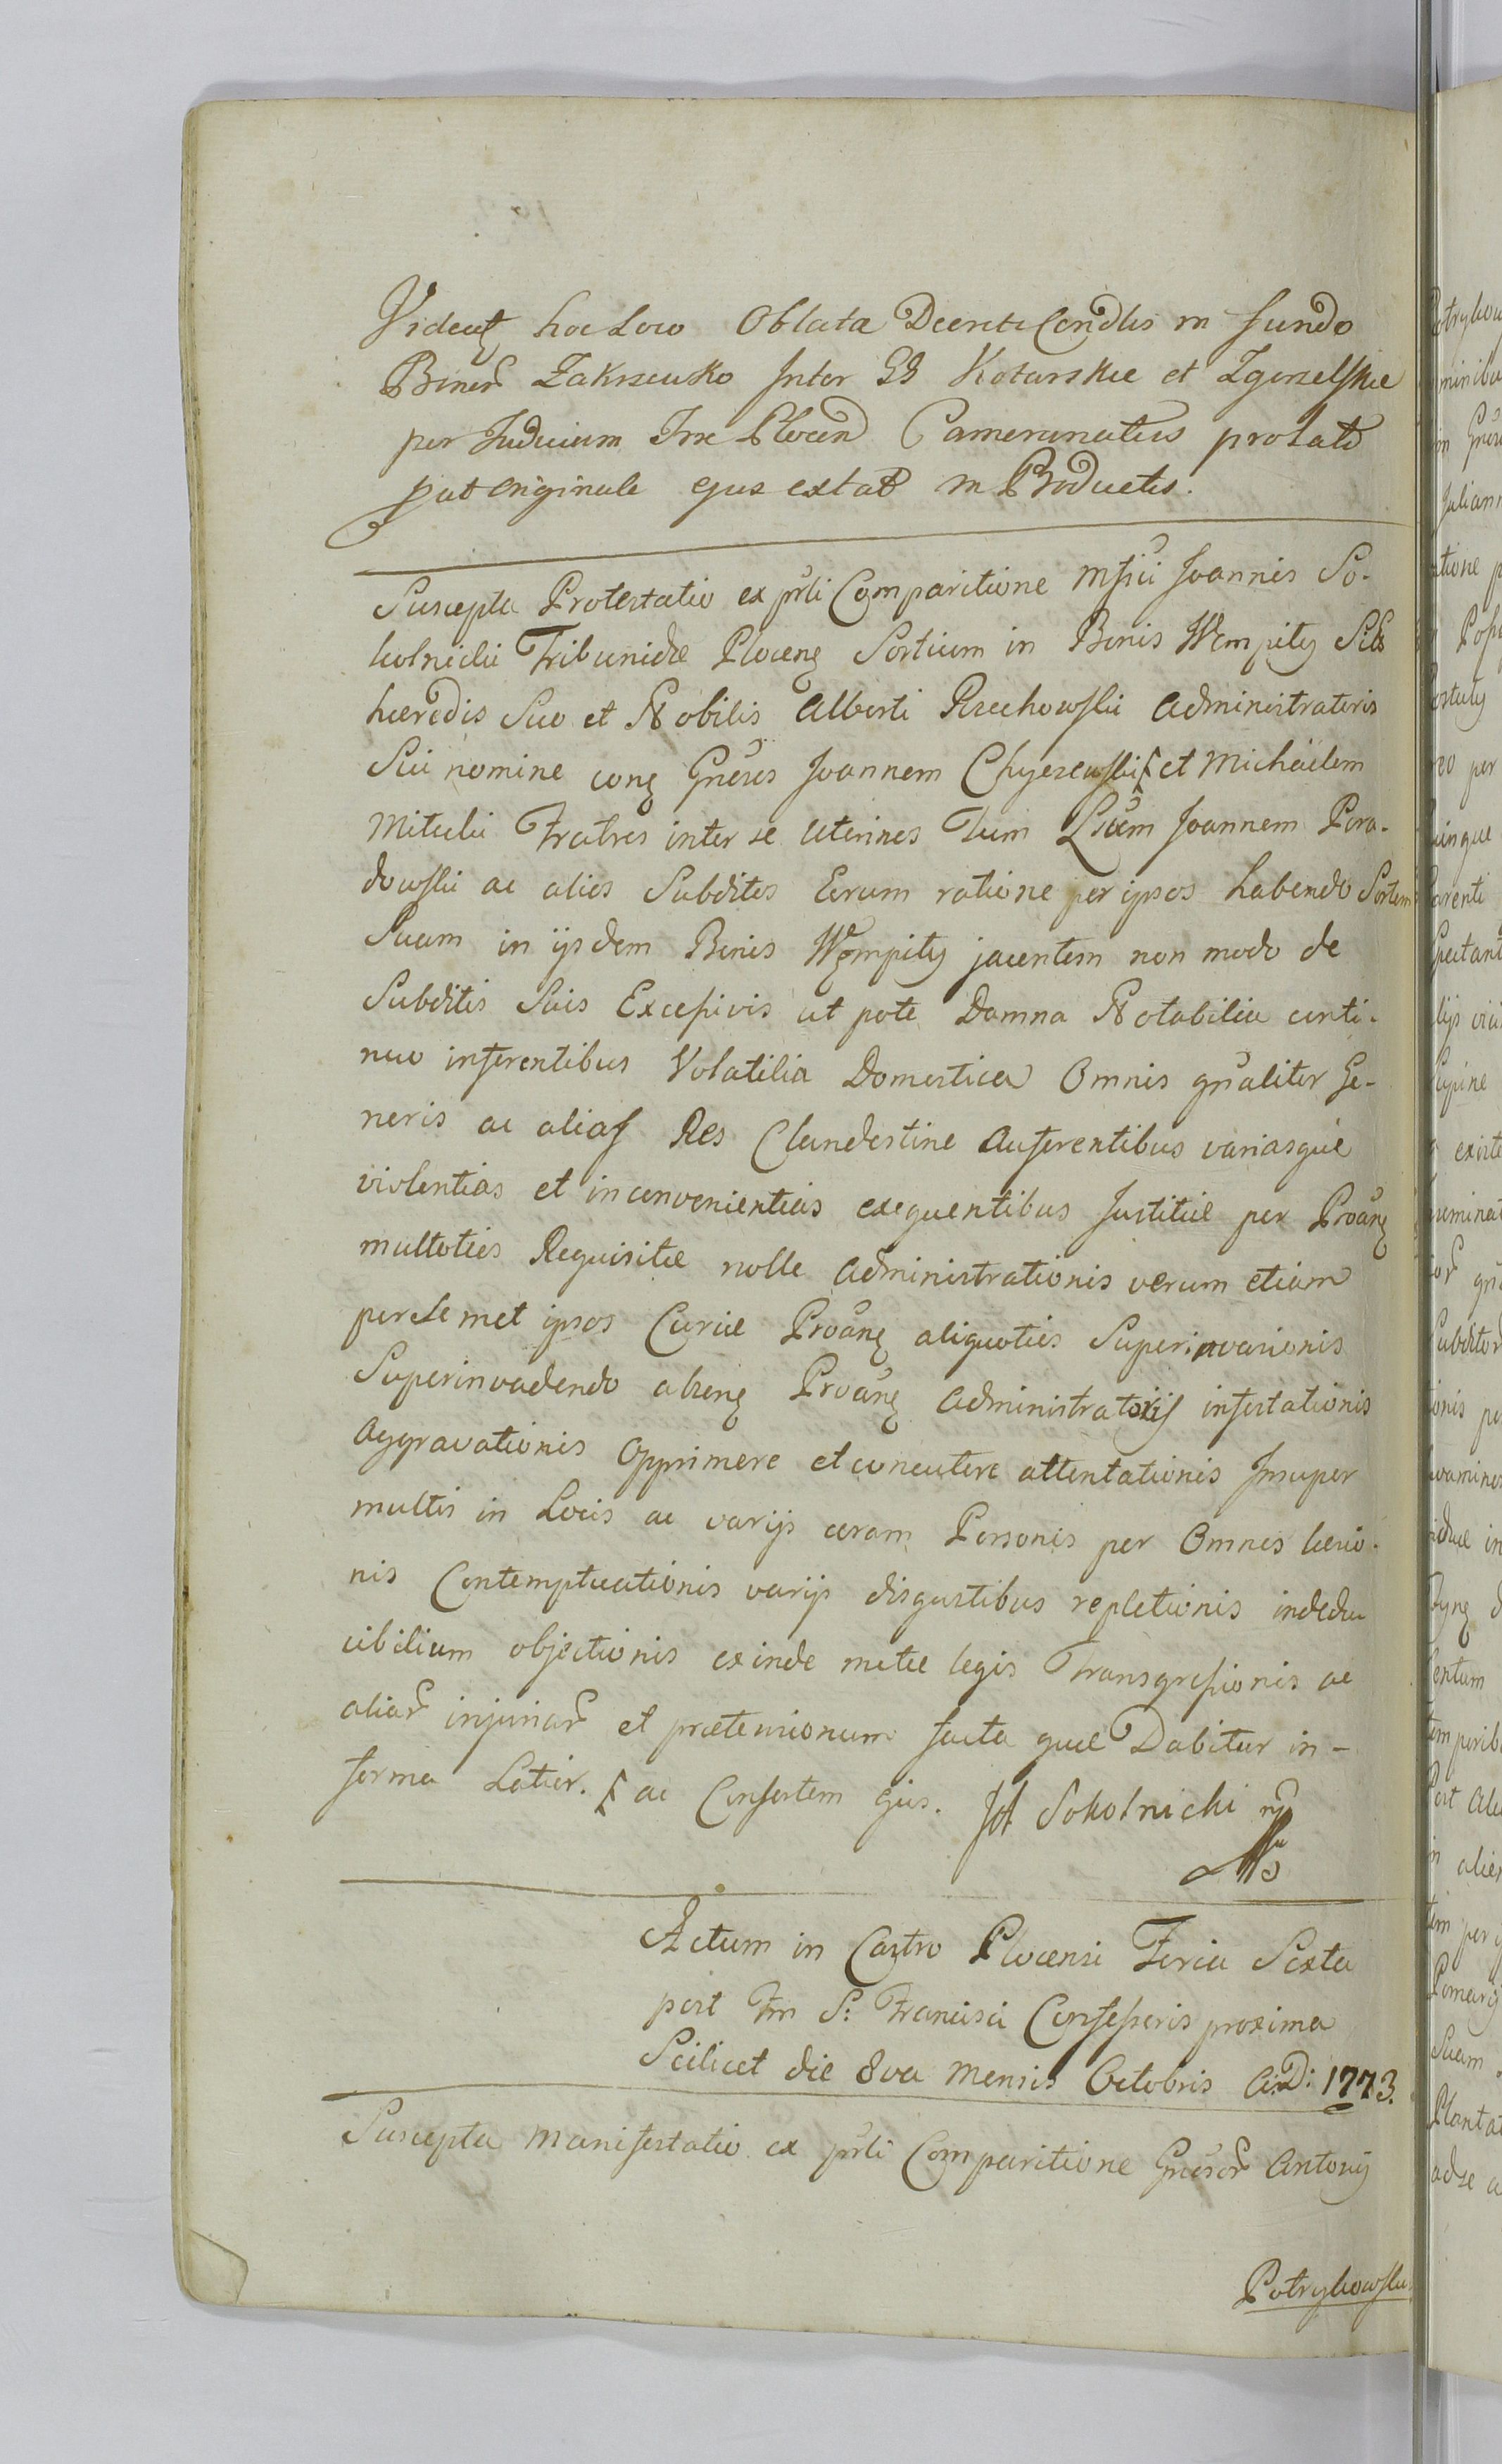 Videatq hoc Loco Oblata Decreti Condlis in fundo
Bonor Zakrzewko Inter GG Kotarskie et Zgorzelskie
per Judicium Trre Plocen Cameranatus prolati
put originale ejus extat in Productis.
Suscepta Protestatio ex prli Comparitione Mfici Joannis So-
kolnicki Tribunidæ Plocenq Sortium in Bonis Wempity
hæredis Suo et Nobilis Alberti Rzechowski Administratoris
Sui nomine conq Gnesos Joannem Chyczewski et Michaelem
Mituli Fratres inter se uterinos Tum Joannem Para-
dowski ac alios Subditos Eorum ratione per ipsos habendo Sortem
Suam in ijsdem Bonis Wempity jacentem non modo de
Subditis Suis Excessivis ut pote Damna Notabilia conti-
nuo inferentibus Volatilia Domestica Omnis gnaliter Ge-
neris ac alias Res Clandestine Auferentibus variasque
violentias et inconvenientias exequentibus Justitiæ per Proanq
multoties Requisitæ nolle Administrationis verum etiam
per Semet ipsos Curiæ Proanq aliquoties Superinvasionis
Superinvadendo absenq Proanq Administratoris infestationis
Aggravationis Opprimere et concutere attentationis Insuper
multis in Locis ac varijs coram Personis per Omnes læsio-
nis Contemptuationis varijs disgustibus repletionis indedu
cibilium objectionis exinde metæ legis Transgressionis ac
aliar injuriar et prætensionum facta quæ Dabitur in-
forma Latior. ac Consortem Ejus. Jst Sokolnicki mp
Actum in Castro Plocensi Feria Sexta
post Fm S: Francisci Confessoris proxima
Scilicet die 8va Mensis Octobris A:D: 1773.
Suscepta Manifestatio ex prli Comparitione Gnesor Antonij
Potrykowski